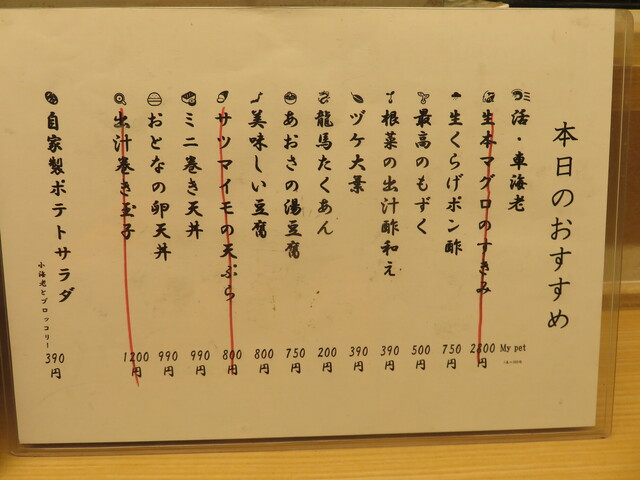 本日のおすすめ
活・車海老 My pet
生本マグロのすきみ 2800円
生くらげポン酢 750円
最高のもずく 500円
根菜の出汁酢和え 390円
ヅケ大葉 390円
龍馬たくあん 200円
あおさの湯豆腐 750円
美味しい豆腐 800円
サツマイモの天ぷら 800円
ミニ巻き天丼 990円
おとなの卵天丼 990円
出汁巻き玉子 1200円
自家製ポテトサラダ 390円
小海老とブロッコリー